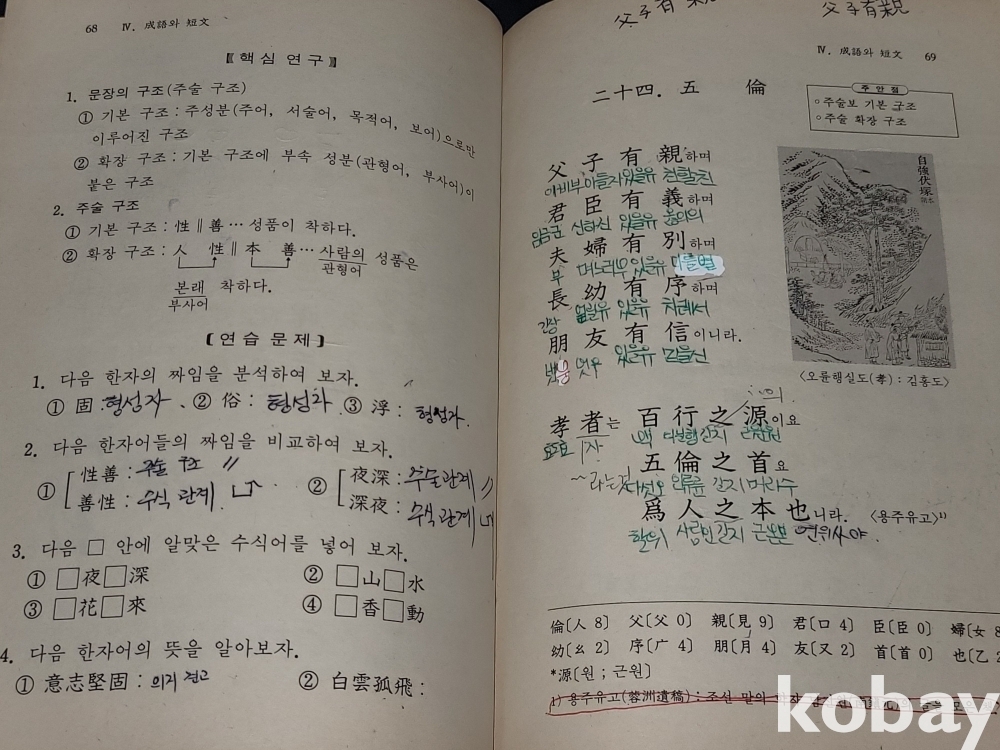 68 Ⅳ. 成語와 短文
〖핵심 연구〗
1. 문장의 구조(주술 구조)
① 기본 구조 : 주성분(주어, 서술어, 목적어, 보어)으로만
이루어진 구조
② 확장 구조 : 기본 구조에 부속 성분(관형어, 부사어)이
붙은 구조
2. 주술 구조
① 기본 구조 : 性 ∥ 善 … 성품이 착하다.
② 확장 구조 : 人 性 ∥ 本 善 … 사람의 성품은
관형어
본래 착하다.
부사어
〔연습 문제〕
1. 다음 한자의 짜임을 분석하여 보자.
① 固 : 형성자 、② 俗 : 형성자 ③ 浮 : 형성자
2. 다음 한자어들의 짜임을 비교하여 보자.
① 性善 : 주술 구조 〃 ② 夜深 : 주술관계 〃
善性 : 수식 관계 深夜 : 수식 관계
3. 다음 □ 안에 알맞은 수식어를 넣어 보자.
① □夜□深 ② □山□水
③ □花□來 ④ □香□動
4. 다음 한자어의 뜻을 알아보자.
① 意志堅固 : 의지 견고 ② 白雲孤飛 :
父子有親 父子有親
Ⅳ. 成語와 短文 69
二十四. 五 倫
주안점
○주술보 기본 구조
○주술 확장 구조
父子有親하며
아비부 아들자 있을유 친할친
君臣有義하며
임금군 신하신 있을유 옳을의
夫婦有別하며
부 며느리부 있을유
長幼有序하며
긴장 있을유 차례서
朋友有信이니라.
벗붕 벗우 있을유 믿을신
自強伏塚
〈오륜행실도(孝) : 김홍도〉
孝者는 百行之源이요
효도효 자
五倫之首요
다섯오 인륜륜 갈지 머리수
爲人之本也니라. 〈용주유고〉¹⁾
할위 사람인 갈지 근본본
倫〔人 8〕 父〔父 0〕 親〔見 9〕 君〔口 4〕 臣〔臣 0〕 婦〔女 8
幼〔幺 2〕 序〔广 4〕 朋〔月 4〕 友〔又 2〕 首〔首 0〕 也〔乙 2
*源〔원 ; 근원〕
1) 용주유고(蓉洲遺稿) : 조선 말의
kobay